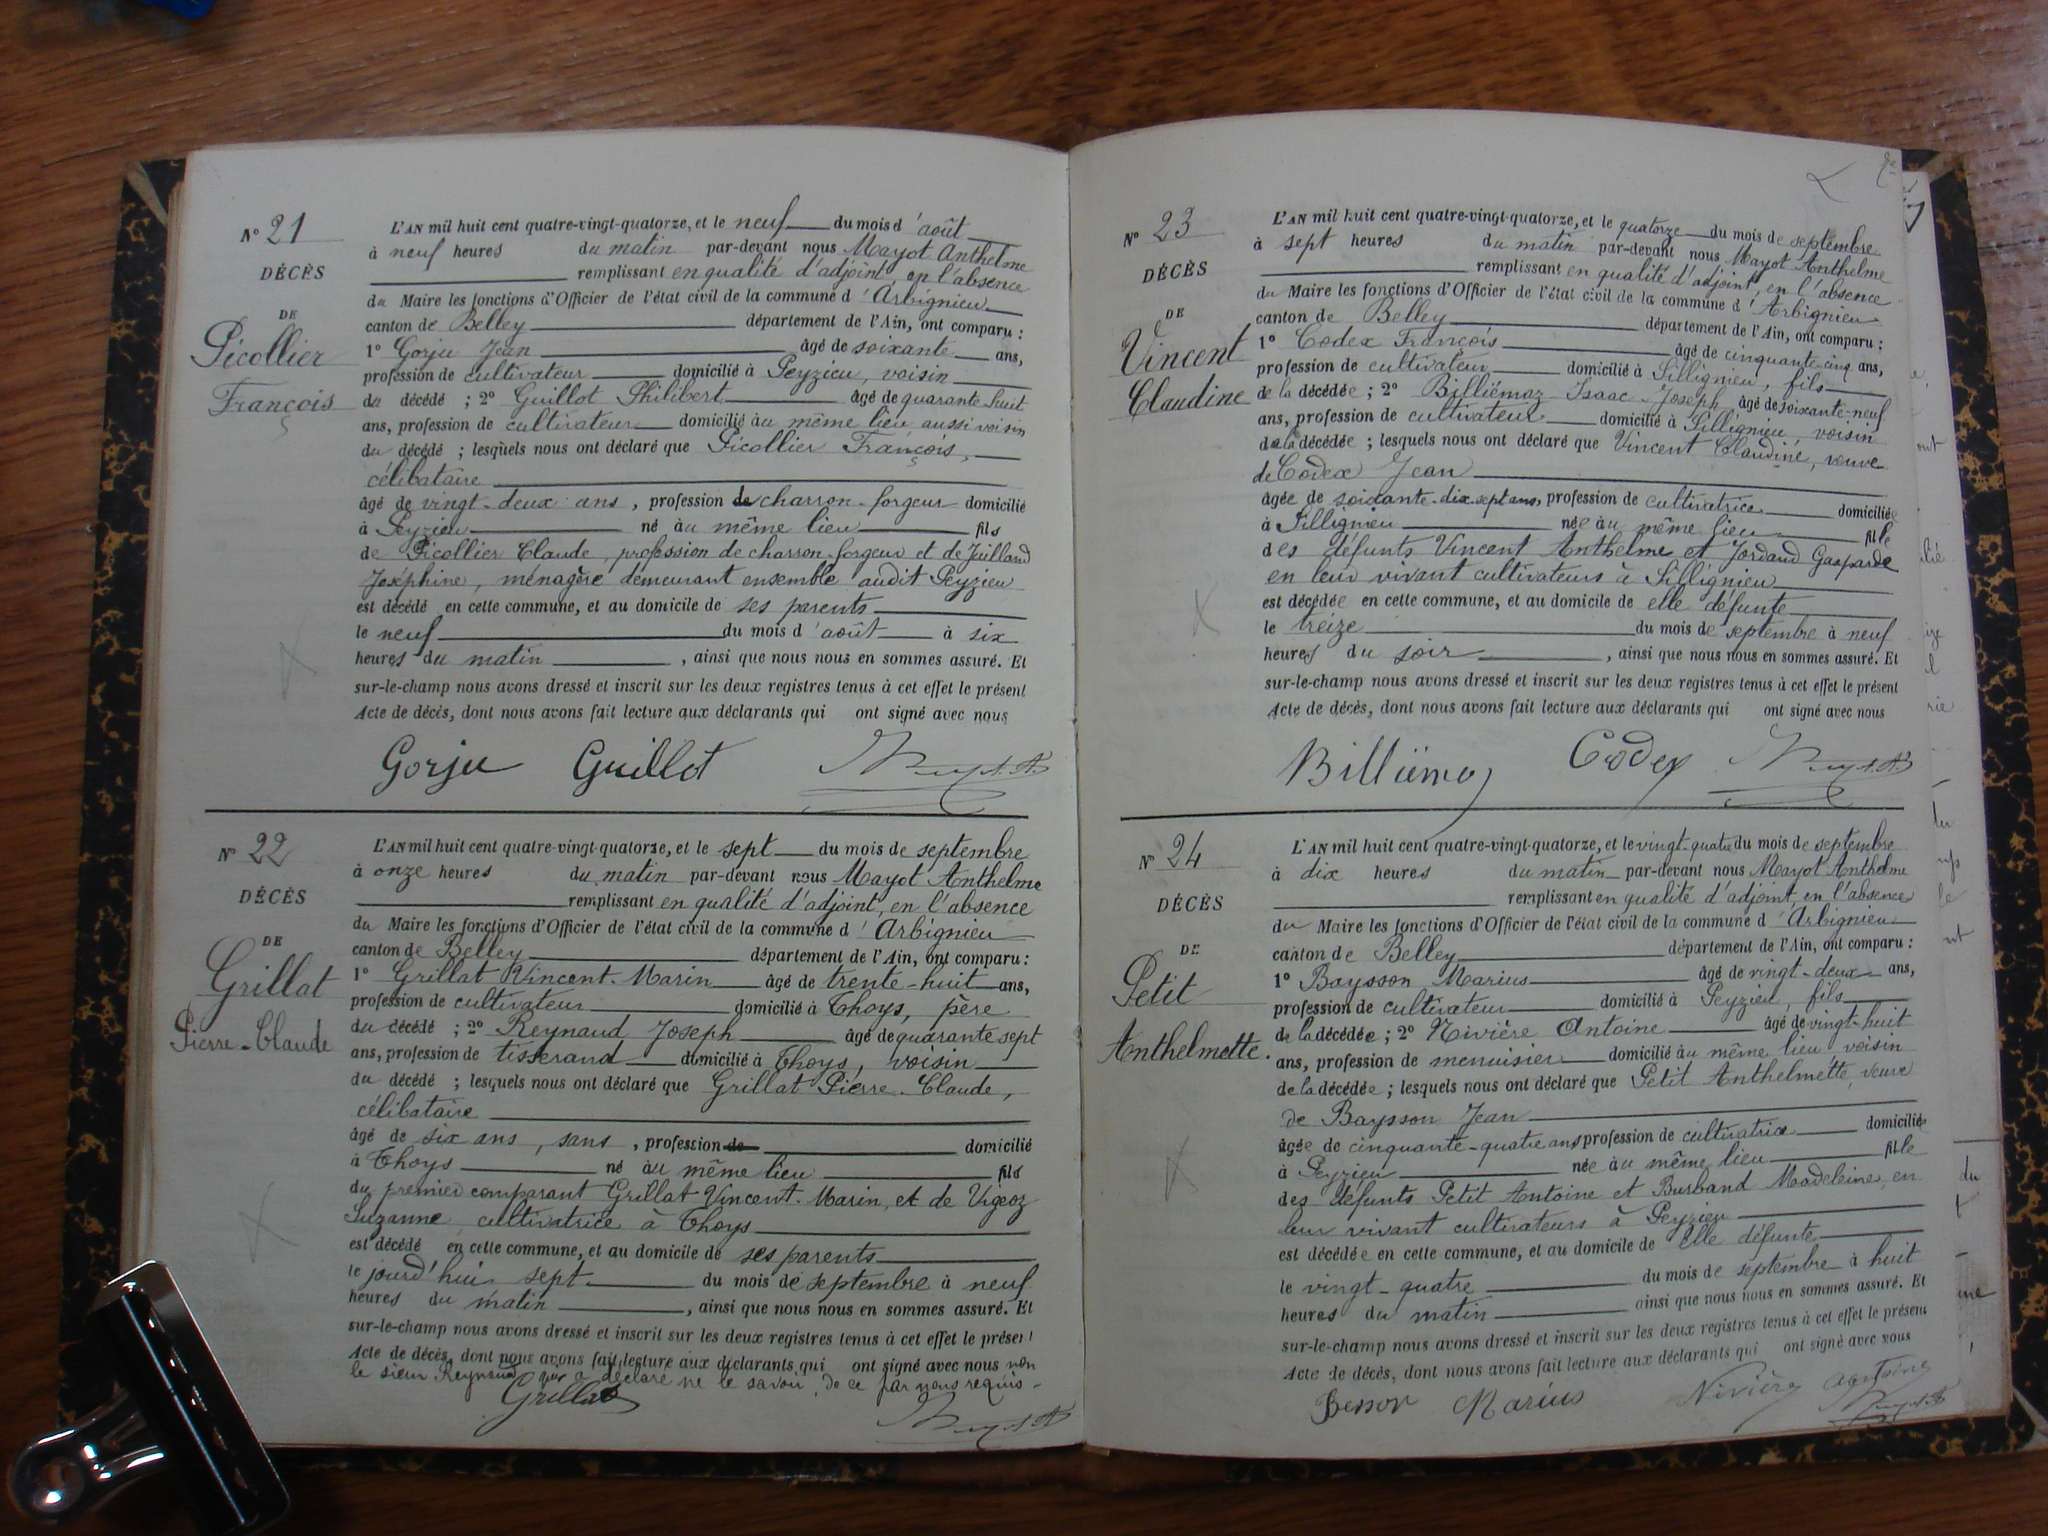 N° 21
DÉCÈS
DE
Picollier
François
L'AN mil huit cent quatre-vingt-quatorze, et le neuf du mois d'août
à neuf heures du matin par-devant nous Mayot Anthelme
remplissant en qualité d'adjoint, en l'absence
du Maire les fonctions d'Officier de l'état civil de la commune d'Arbignieu
canton de Belley département de l'Ain, ont comparu :
1° Gorju Jean âgé de soixante ans,
profession de cultivateur domicilié à Peyzieu, voisin
du décédé ; 2° Guillot Philibert âgé de quarante huit
ans, profession de cultivateur domicilié au même lieu aussi voisin
du décédé ; lesquels nous ont déclaré que Picollier François,
célibataire
âgé de vingt-deux ans, profession de charron-forgeur domicilié
à Peyzieu né au même lieu fils
de Picollier Claude, profession de charron-forgeur et de Juilland
Joséphine, ménagère demeurant ensemble audit Peyzieu
est décédé en cette commune, et au domicile de ses parents
le neuf du mois d'août à six
heures du matin, ainsi que nous nous en sommes assuré. Et
sur-le-champ nous avons dressé et inscrit sur les deux registres tenus à cet effet le présent
Acte de décès, dont nous avons fait lecture aux déclarants qui ont signé avec nous
Gorju Guillot
N° 22
DÉCÈS
DE
Grillat
Pierre-Claude
L'AN mil huit cent quatre-vingt-quatorze, et le sept du mois de septembre
à onze heures du matin par-devant nous Mayot Anthelme
remplissant en qualité d'adjoint, en l'absence
du Maire les fonctions d'Officier de l'état civil de la commune d'Arbignieu
canton de Belley département de l'Ain, ont comparu :
1° Grillat Vincent-Marin âgé de trente-huit ans,
profession de cultivateur domicilié à Thoys, père
du décédé ; 2° Reynaud Joseph âgé de quarante sept
ans, profession de tisserand domicilié à Thoys, voisin
du décédé ; lesquels nous ont déclaré que Grillat Pierre-Claude,
célibataire
âgé de six ans, sans, profession de domicilié
à Thoys né au même lieu fils
du premier comparant Grillat Vincent-Marin, et de Vigeoz
Suzanne, cultivatrice à Thoys
est décédé en cette commune, et au domicile de ses parents
le jourd'hui sept du mois de septembre à neuf
heures du matin, ainsi que nous nous en sommes assuré. Et
sur-le-champ nous avons dressé et inscrit sur les deux registres tenus à cet effet le présent
Acte de décès, dont nous avons fait lecture aux déclarants qui ont signé avec nous non
le sieur Reynaud qui a déclaré ne le savoir, de ce par nous requis
Grillat
N° 23
DÉCÈS
DE
Vincent
Claudine
L'AN mil huit cent quatre-vingt-quatorze, et le quatorze du mois de septembre
à sept heures du matin par-devant nous Mayot Anthelme
remplissant en qualité d'adjoint, en l'absence
du Maire les fonctions d'Officier de l'état civil de la commune d'Arbignieu
canton de Belley département de l'Ain, ont comparu :
1° Codex François âgé de cinquante cinq ans,
profession de cultivateur domicilié à Sillignieu, fils
de la décédée ; 2° Billiémaz Isaac-Joseph âgé de soixante-neuf
ans, profession de cultivateur domicilié à Sillignieu voisin
de la décédée ; lesquels nous ont déclaré que Vincent Claudine, veuve
de Codex Jean
âgée de soixante-dix-sept ans, profession de cultivatrice domiciliée
à Sillignieu née au même lieu fille
des défunts Vincent Anthelme et Jordand Gasparde
en leur vivant cultivateurs à Sillignieu
est décédée en cette commune, et au domicile de elle défunte
le treize du mois de septembre à neuf
heures du soir, ainsi que nous nous en sommes assuré. Et
sur-le-champ nous avons dressé et inscrit sur les deux registres tenus à cet effet le présent
Acte de décès, dont nous avons fait lecture aux déclarants qui ont signé avec nous
Billiémaz Codex
N° 24
DÉCÈS
DE
Petit
Anthelmette.
L'AN mil huit cent quatre-vingt-quatorze, et le vingt-quatre du mois de septembre
à dix heures du matin par-devant nous Mayot Anthelme
remplissant en qualité d'adjoint, en l'absence
du Maire les fonctions d'Officier de l'état civil de la commune d'Arbignieu
canton de Belley département de l'Ain, ont comparu :
1° Baysson Marius âgé de vingt-deux ans,
profession de cultivateur domicilié à Peyzieu, fils
de la décédée ; 2° Nivière Antoine âgé de vingt-huit
ans, profession de menuisier domicilié au même lieu voisin
de la décédée ; lesquels nous ont déclaré que Petit Anthelmette, veuve
de Baysson Jean
âgée de cinquante-quatre ans profession de cultivatrice domiciliée
à Peyzieu née au même lieu fille
des défunts Petit Antoine et Burband Madeleine, en
leur vivant cultivateurs à Peyzieu
est décédée en cette commune, et au domicile de elle défunte
le vingt-quatre du mois de septembre à huit
heures du matin ainsi que nous nous en sommes assuré. Et
sur-le-champ nous avons dressé et inscrit sur les deux registres tenus à cet effet le présent
Acte de décès, dont nous avons fait lecture aux déclarants qui ont signé avec nous
Besson Marius Nivière Antoine